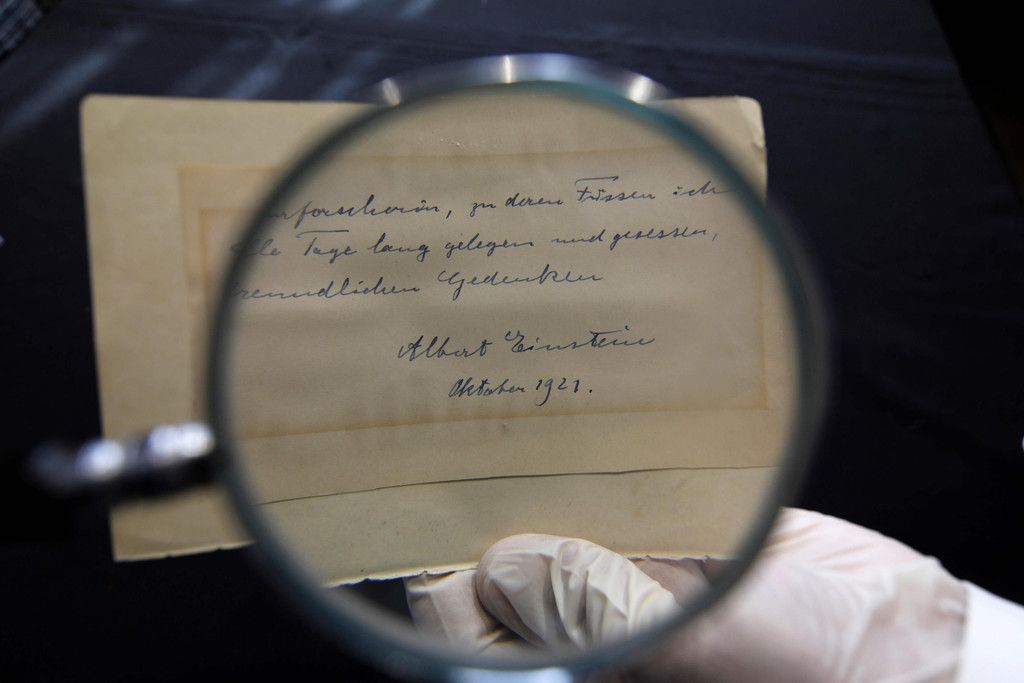 rforscherin, zu deren Füssen ich
le Tage lang gelegen und gesessen,
reundlichen Gedenken
Albert Einstein
Oktober 1921.